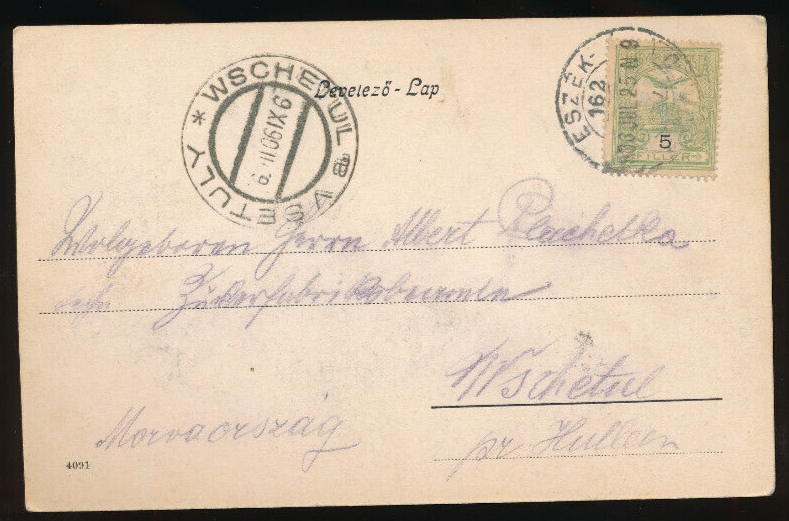 Levelező - Lap
* WSCHETUL a VŠETULY
6 IX 06
ESZÉK-
162
5
FILLÉR
Wolgeboren Herrn Albert Plachetka
Zukerfabriksbeamten
Wschetul
pr Hullein
Morvaország
4091